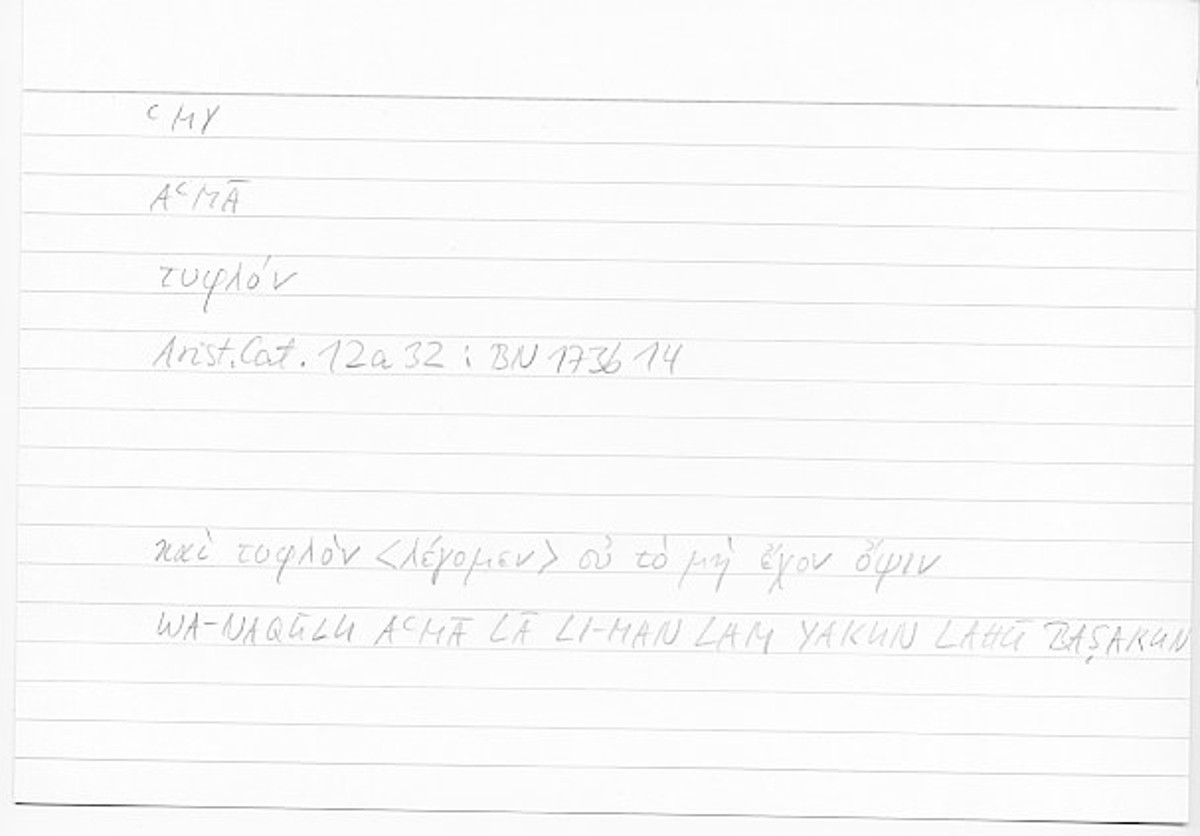 ʿMY
AʿMĀ
τυφλόν
Arist. Cat. 12a32 ; BN 173b14
καὶ τυφλὸν <λέγομεν> οὐ τὸ μὴ ἔχον ὄψιν
WA-NAQŪLU AʿMĀ LĀ LI-MAN LAM YAKUN LAHŪ BAṢARUN